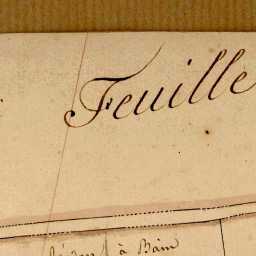 Feuille
à Bain